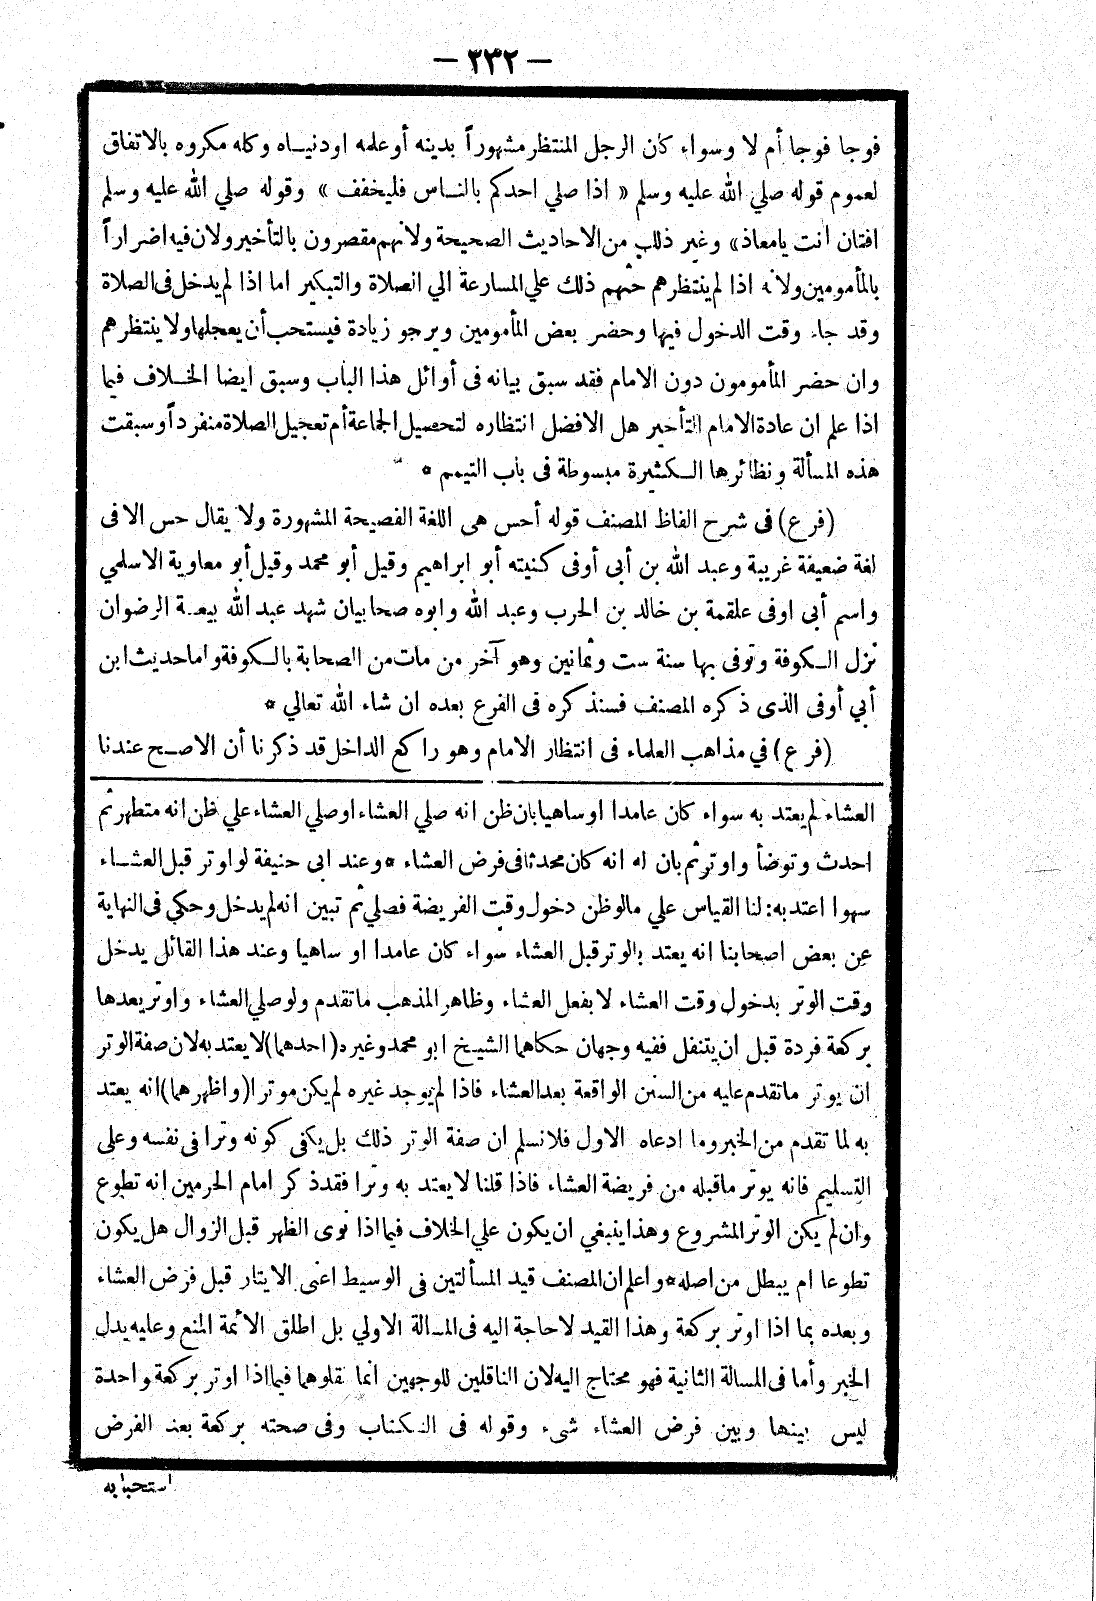 — ٢٣٢ —
فوجا فوجا أم لا وسواء كان الرجل المنتظر مشهوراً بدينه أو علمه او دنيـاه وكله مكروه بالاتفاق
لعموم قوله صلي الله عليه وسلم « اذا صلي احدكم بالنـاس فليخفف » وقوله صلي الله عليه وسلم
افتان أنت يا معاذ » وغير ذلك من الاحاديث الصحيحة ولانهم مقصرون بالتأخير ولان فيه اضراراً
بالمأمومين ولانه اذا لم ينتظرهم حثهم ذلك علي المسارعة الي الصلاة والتبكير اما اذا لم يدخل فى الصلاة
وقد جاء وقت الدخول فيها وحضر بعض المأمومين ويرجو زيادة فيستحب أن يعجلها ولا ينتظرهم
وان حضر المأمومون دون الامام فقد سبق بيانه فى أوائل هذا الباب وسبق ايضا الخـلاف فيما
اذا علم ان عادة الامام التأخير هل الافضل انتظاره لتحصيل الجماعة أم تعجيل الصلاة منفرداً وسبقت
هذه المسألة ونظائرها الـكثيرة مبسوطة فى باب التيمم *
(فرع) فى شرح الفاظ المصنف قوله أحس هى اللغة الفصيحة المشهورة ولا يقال حس الا فى
لغة ضعيفة غريبة وعبد الله بن أبى أوفى كنيته أبو ابراهيم وقيل أبو محمد وقيل أبو معاوية الاسلمي
واسم أبى اوفى علقمة بن خالد بن الحرب وعبد الله وابوه صحابيان شهد عبد الله بيعـة الرضوان
نزل الـكوفة وتوفى بها سنة ست وثمانين وهو آخر من مات من الصحابة بالـكوفة واما حديث ابن
أبي أوفى الذى ذكره المصنف فسنذكره فى الفرع بعده ان شاء الله تعالي *
(فرع) في مذاهب العلماء فى انتظار الامام وهو راكع الداخل قد ذكرنا أن الاصـح عندنا
العشاء لم يعتد به سواء كان عامدا او ساهيا بان ظن انه صلي العشاء او صلي العشاء علي ظن انه متطهر ثم
احدث وتوضأ واوتر ثم بان له انه كان محدثا فى فرض العشاء * وعند ابى حنيفة لو اوتر قبل العشـاء
سهوا اعتد به: لنا القياس علي مالو ظن دخول وقت الفريضة فصلي ثم تبين انه لم يدخل وحكي فى النهاية
عن بعض اصحابنا انه يعتد بالوتر قبل العشاء سواء كان عامدا او ساهيا وعند هذا القائل يدخل
وقت الوتر بدخول وقت العشاء لا بفعل العشاء وظاهر المذهب ما تقدم ولو صلي العشاء واوتر بعدها
بركعة فردة قبل ان يتنفل ففيه وجهان حكاهما الشيخ ابو محمد وغيره (احدهما) لا يعتد به لان صفة الوتر
ان يوتر ما تقدم عليه من السنن الواقعة بعد العشاء فاذا لم يوجد غيره لم يكن موترا (واظهرهما) انه يعتد
به لما تقدم من الخبر وما ادعاه الاول فلا نسلم ان صفة الوتر ذلك بل يكفى كونه وترا فى نفسه وعلى
التسليم فانه يوتر ماقبله من فريضة العشاء فاذا قلنا لا يعتد به وترا فقد ذكر امام الحرمين انه تطوع
وان لم يكن الوتر المشروع وهذا ينبغي ان يكون علي الخلاف فيما اذا نوى الظهر قبل الزوال هل يكون
تطوعا ام يبطل من اصله * واعلم ان المصنف قيد المسألتين فى الوسيط اعنى الايتار قبل فرض العشاء
وبعده بما اذا اوتر بركعة وهذا القيد لا حاجة اليه فى المسالة الاولي بل اطلق الأئمة المنع وعليه يدل
الخبر وأما فى المسالة الثانية فهو محتاج اليه لان الناقلين للوجهين انما نقلوهما فيما اذا اوتر بركعة واحدة
ليس بينها وبين فرض العشاء شىء وقوله فى الـكتاب وفى صحته بركعة بعد الفرض
استحبابه